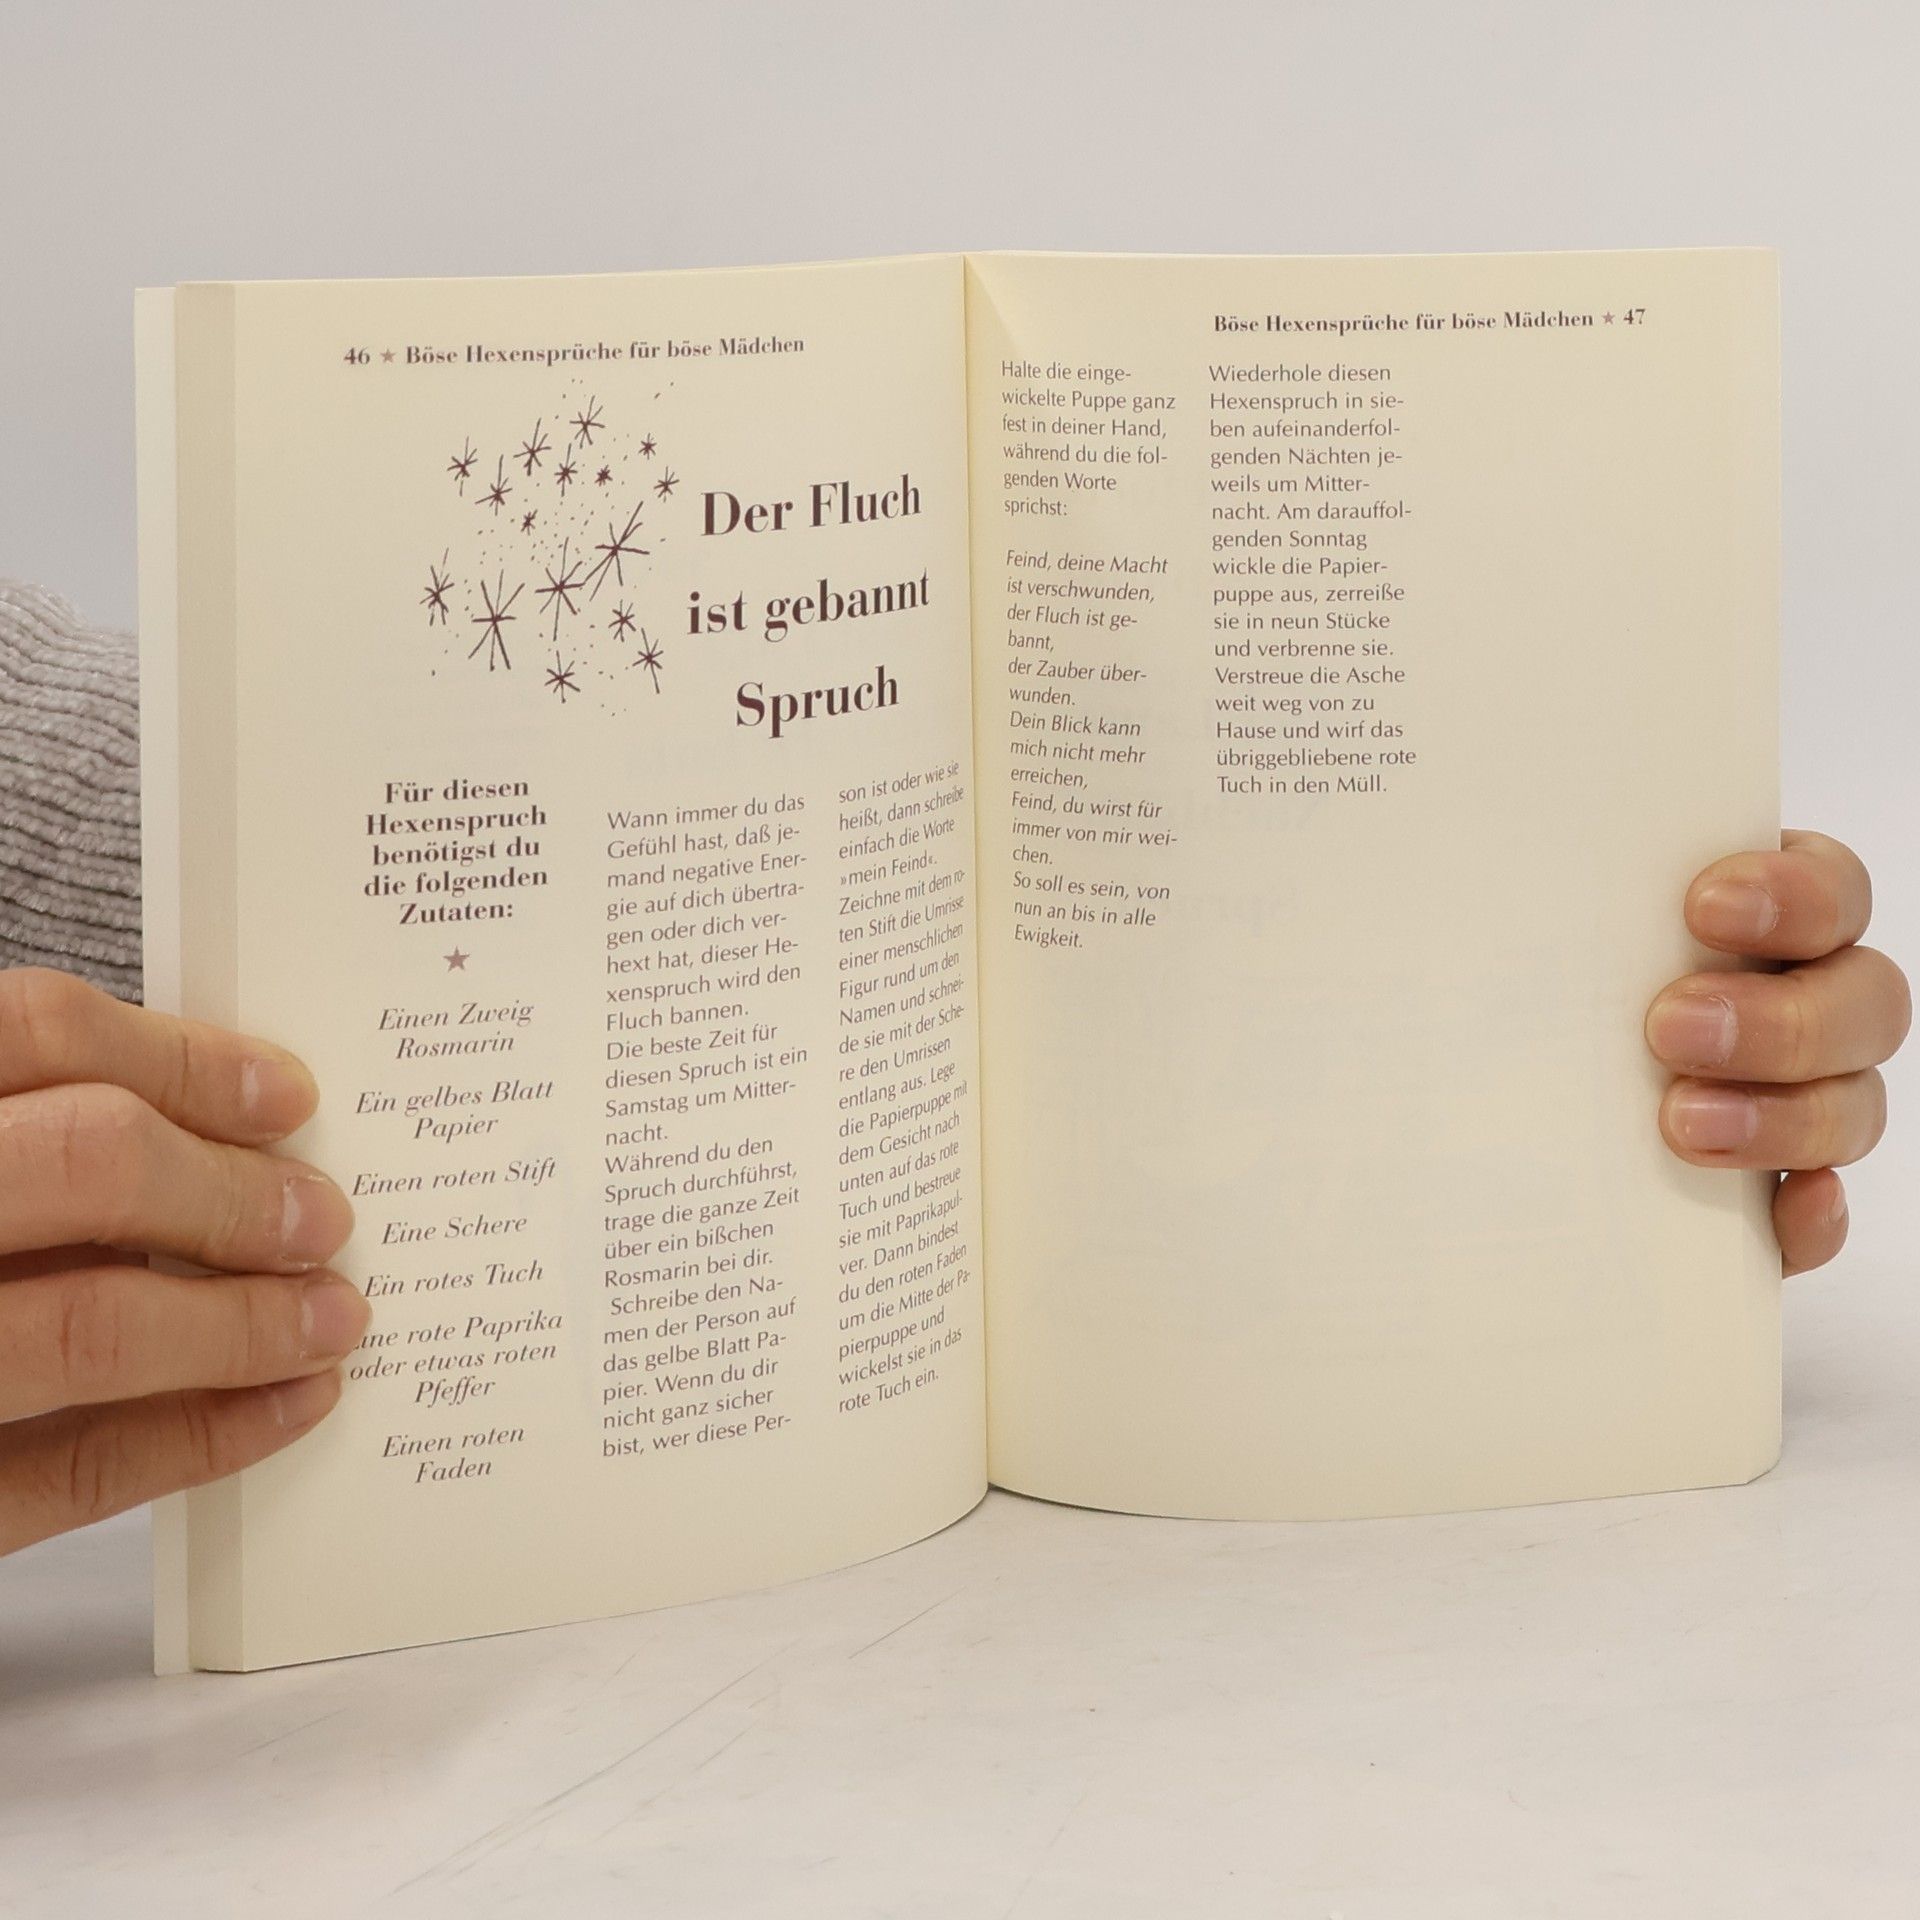 46 ★ Böse Hexensprüche für böse Mädchen
Der Fluch
ist gebannt
Spruch
Für diesen
Hexenspruch
benötigst du
die folgenden
Zutaten:
★
Einen Zweig
Rosmarin
Ein gelbes Blatt
Papier
Einen roten Stift
Eine Schere
Ein rotes Tuch
rote Paprika
oder etwas roten
Pfeffer
Einen roten
Faden
Wann immer du das
Gefühl hast, daß je-
mand negative Ener-
gie auf dich übertra-
gen oder dich ver-
hext hat, dieser He-
xenspruch wird den
Fluch bannen.
Die beste Zeit für
diesen Spruch ist ein
Samstag um Mitter-
nacht.
Während du den
Spruch durchführst,
trage die ganze Zeit
über ein bißchen
Rosmarin bei dir.
Schreibe den Na-
men der Person auf
das gelbe Blatt Pa-
pier. Wenn du dir
nicht ganz sicher
bist, wer diese Per-
son ist oder wie sie
heißt, dann schreibe
einfach die Worte
»mein Feind«.
Zeichne mit dem ro-
ten Stift die Umrisse
einer menschlichen
Figur rund um den
Namen und schnei-
de sie mit der Sche-
re den Umrissen
entlang aus. Lege
die Papierpuppe mit
dem Gesicht nach
unten auf das rote
Tuch und bestreue
sie mit Paprikapul-
ver. Dann bindest
du den roten Faden
um die Mitte der Pa-
pierpuppe und
wickelst sie in das
rote Tuch ein.
Böse Hexensprüche für böse Mädchen ★ 47
Halte die einge-
wickelte Puppe ganz
fest in deiner Hand,
während du die fol-
genden Worte
sprichst:
Feind, deine Macht
ist verschwunden,
der Fluch ist ge-
bannt,
der Zauber über-
wunden.
Dein Blick kann
mich nicht mehr
erreichen,
Feind, du wirst für
immer von mir wei-
chen.
So soll es sein, von
nun an bis in alle
Ewigkeit.
Wiederhole diesen
Hexenspruch in sie-
ben aufeinanderfol-
genden Nächten je-
weils um Mitter-
nacht. Am darauffol-
genden Sonntag
wickle die Papier-
puppe aus, zerreiße
sie in neun Stücke
und verbrenne sie.
Verstreue die Asche
weit weg von zu
Hause und wirf das
übriggebliebene rote
Tuch in den Müll.